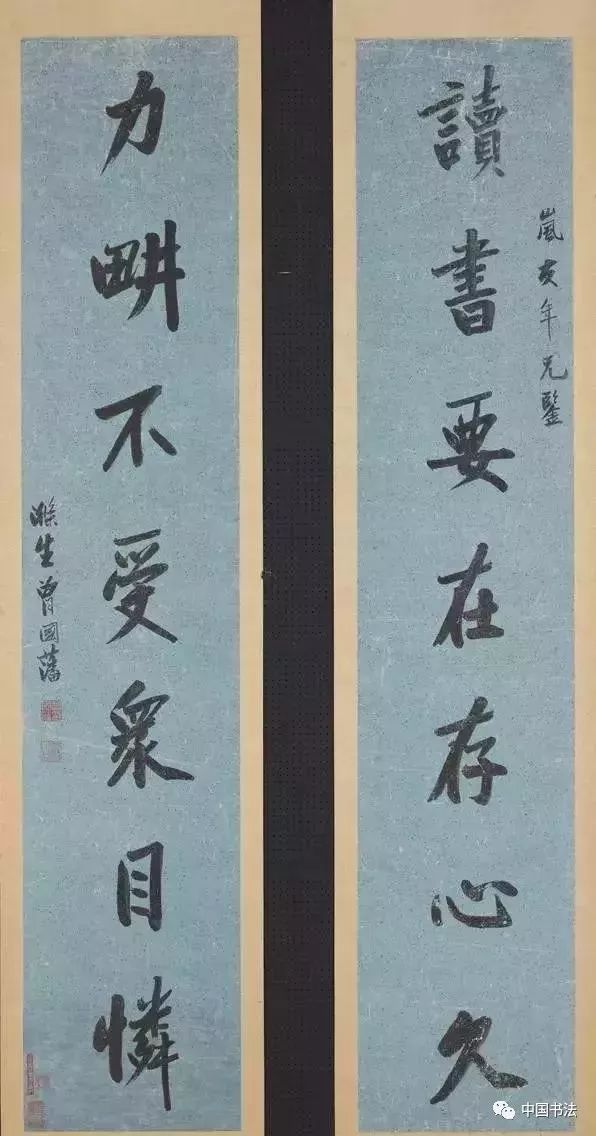 讀書要在存心久
嵐亥年兄鑒
力畊不受衆目憐
滌生曾國藩
中国书法